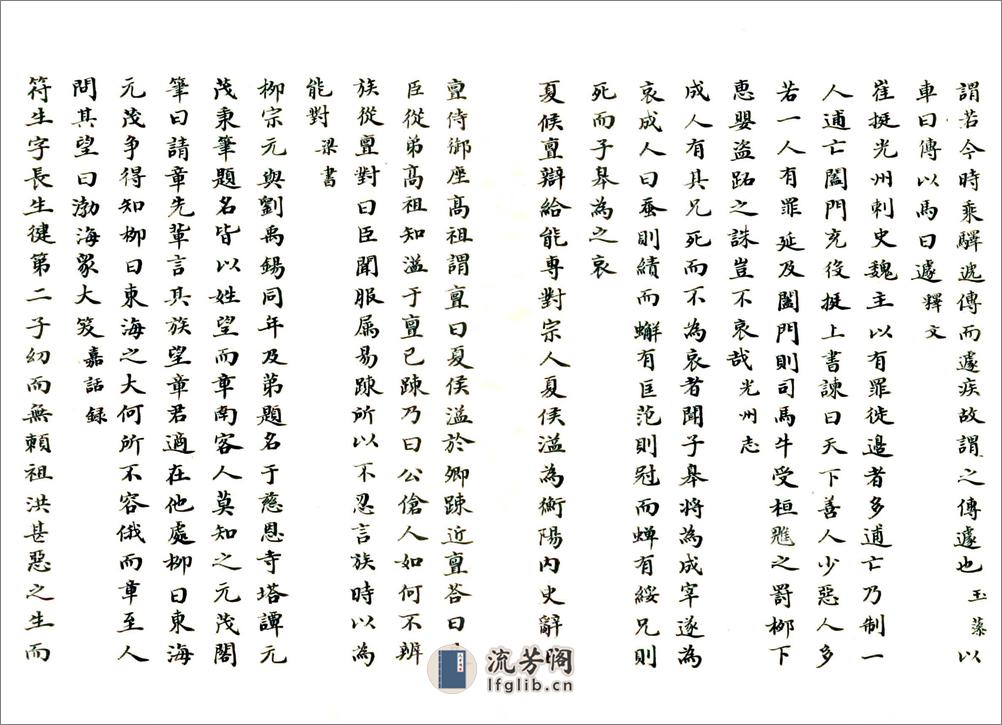 謂若今時乘驛遞傳而遽疾故謂之傳遽也 玉藻 以
車曰傳以馬曰遽 釋文
崔挺光州刺史魏主以有罪徙邊者多逋亡乃制一
人逋亡闔門充役挺上書諫曰天下善人少惡人多
若一人有罪延及闔門則司馬牛受桓魋之罰栁下
惠嬰盜跖之誅豈不哀哉 光州志
成人有其兄死而不為哀者聞子皋將為成宰遂為
哀成人曰蚕則績而蠏有匡范則冠而蟬有綏兄則
死而子皋為之哀
夏候亶辯給能専對宗人夏侯溢為衡陽内史辭
亶侍御座高祖謂亶曰夏侯溢於卿踈近亶荅曰
臣從弟髙祖知溢于亶已踈乃曰公傖人如何不辨
族從亶對曰臣聞服屬易踈所以不忍言族時以為
能對 梁書
栁宗元與劉禹錫同年及弟題名于慈恩寺塔譚元
茂秉筆題名皆以姓望而辛南客人莫知之元茂閣
筆曰請章先軰言其族望章君適在他處栁曰東海
元茂争得知栁曰東海之大何所不容俄而章至人
問其望曰渤海衆大笑 嘉話録
符生字長生健第二子幼而無賴祖洪甚惡之生而
流芳阁
lfglib.cn